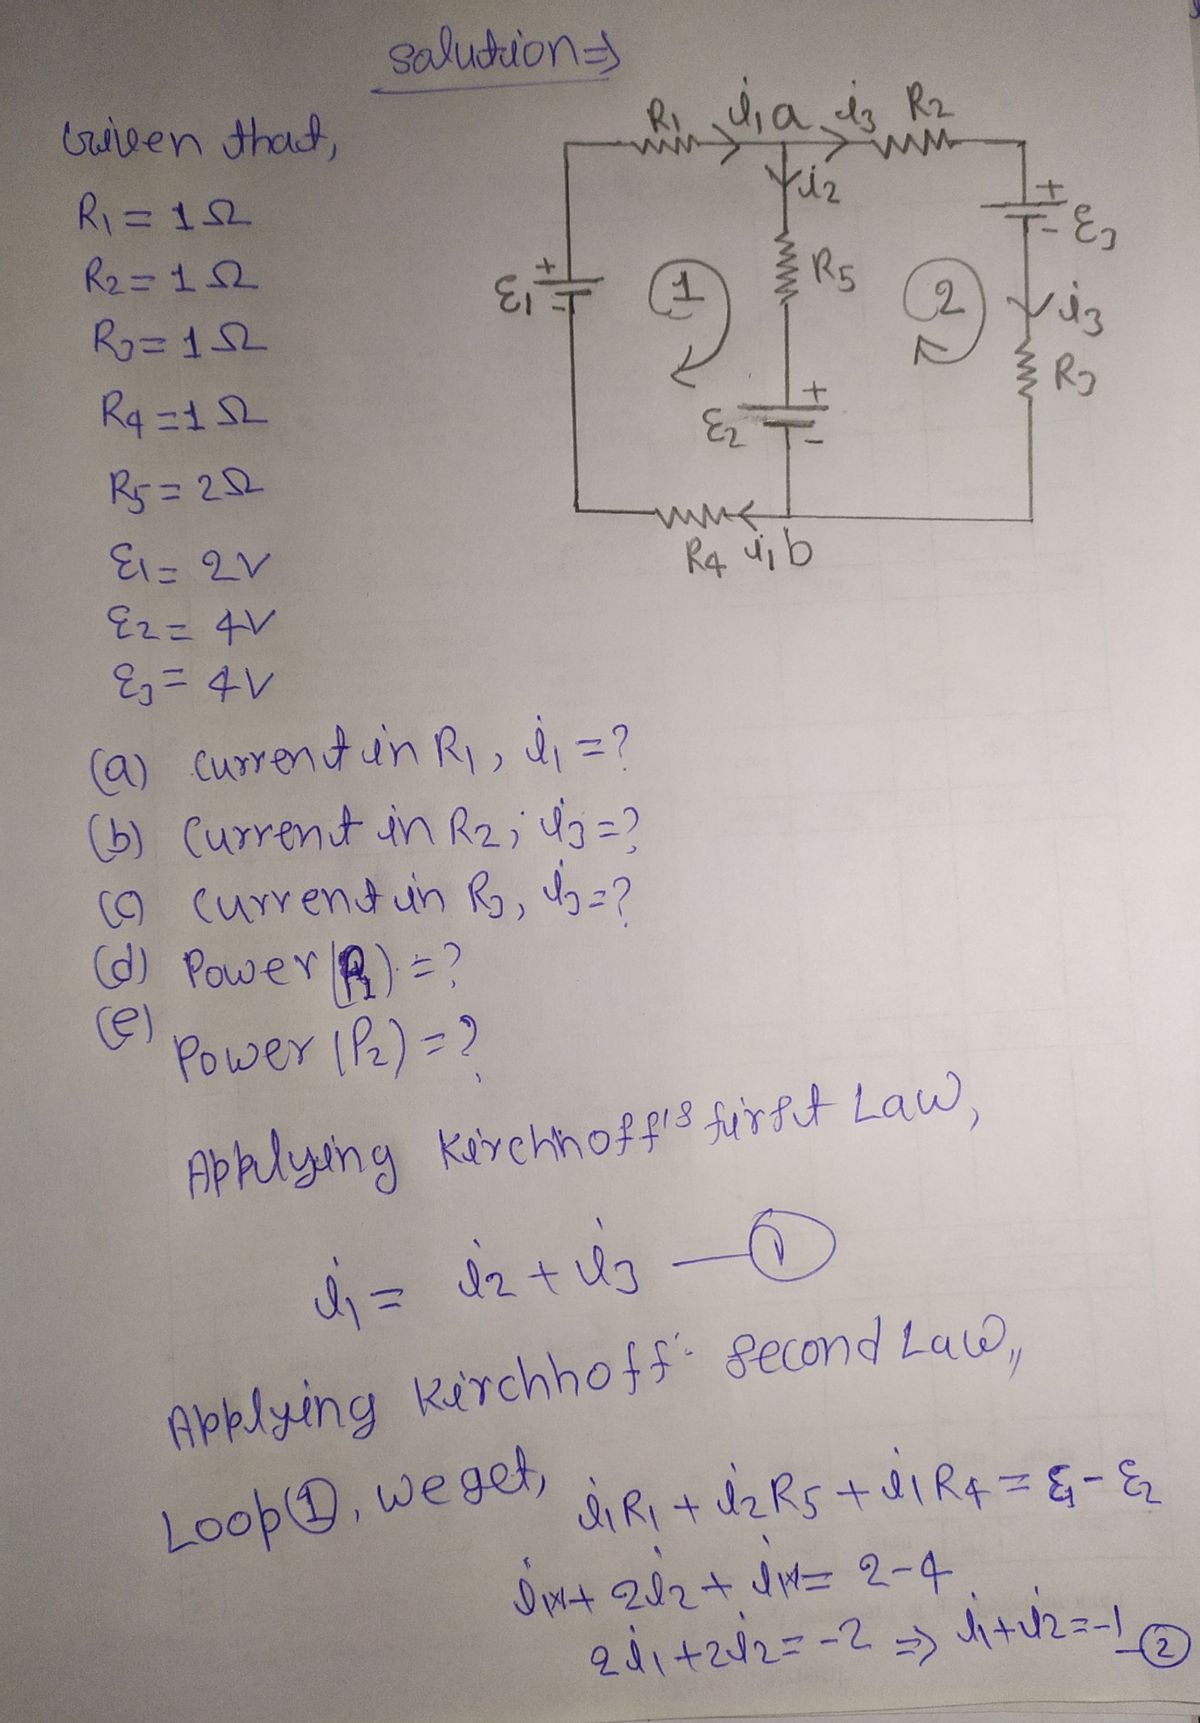 Solution ⇒
Given that,
R1 = 1 Ω
R2 = 1 Ω
R3 = 1 Ω
R4 = 1 Ω
R5 = 2Ω
ε1 = 2V
ε2 = 4V
ε3 = 4V
R1 i1 a i3 R2
i2
+ ε3 -
R5
ε1 + -
1
2
i3
R3
ε2 + -
R4 i1 b
(a) Current in R1, i1 = ?
(b) Current in R2, i3 = ?
(c) Current in R3, i3 = ?
(d) Power (P1) = ?
(e) Power (P2) = ?
Applying Kirchhoff's first Law,
i1 = i2 + i3 — ①
Applying Kirchhoff's Second Law,,
Loop ①, we get, i1R1 + i2R5 + i1R4 = ε1 - ε2
i1×1 + 2i2 + i1×1 = 2-4
2i1 + 2i2 = -2 ⇒ i1 + i2 = -1 — ②